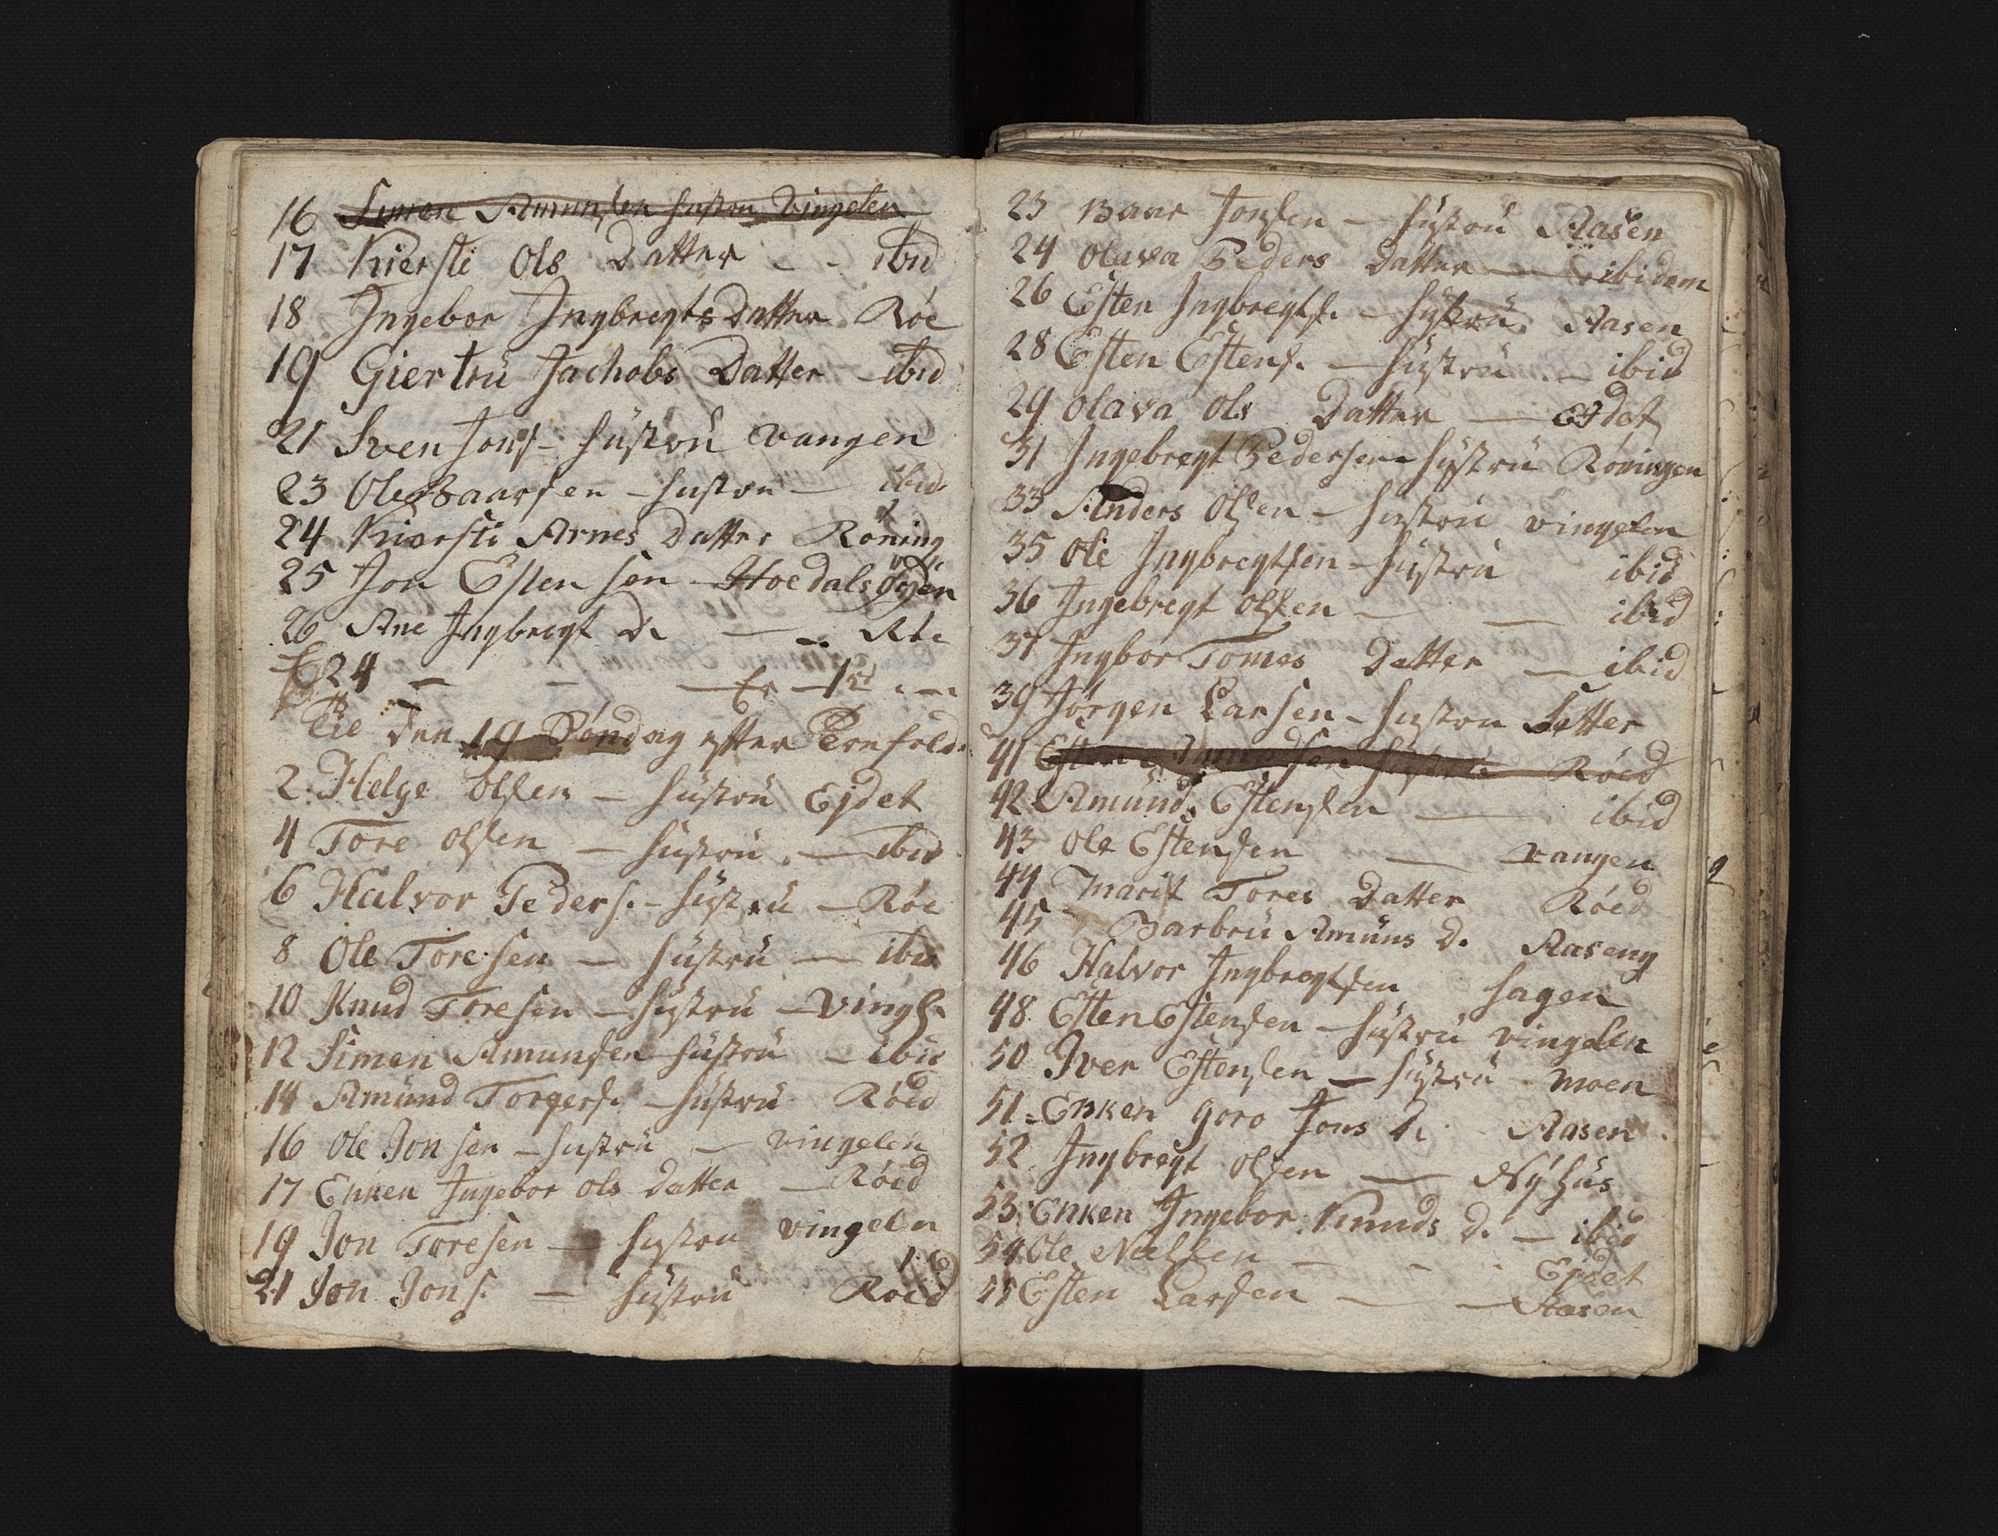 16 Simen Amunsen hustru Vingelen
17 Kiersti Ols Datter - - ibid
18 Ingebor Ingbregts Datter Røe
19 Giertrü Jachobs Datter - ibid
21 Sven Jons - hüstrü vangen
23 Ole Baarsen - hustru - ibid
24 Kiersti Arnes Datter Røning
25 Jon Esten sen - Hoedalsøyen
26 Ane Ingbregt D. - - Røe
24 - - - Er - 1
Til Den 19 Søndag efter Trefold.
2 Helge Olsen - hüstrü Ejdet
4 Tore Olsen - hüstrü - ibid
6 Halvor Peders. - hüstrü - Røe
8 Ole Toresen - hüstrü - ibid
10 Knud Toresen - hüstrü - Vingl.
12 Simen Amunsen hüstrü - ibid
14 Amünd Torgers. - hüstrü Røed
16 Ole Jonsen - hustrü - vingelen
17 Enken Ingebor Ols Datter - Røed
19 Jon Toresen - hystru vingeln
21 Jon Jons. - hüstrü Røed
23 Baar Jonsen - hüstrü Aasen
24 Olava Peders Datter - ibidem
26 Esten Ingbregts. - hüstrü. Aasen
28 Esten Estens. - hüstrü - ibid
29 Olava Ols Datter - Ejdet
31 Ingebregt Pedersen - hystrü Røningen
33 Anders Olsen - hustrü vingelen
35 Ole Ingbregtsen - hüstrü ibid
36 Ingebregt Olsen - - ibid
37 Ingbor Tomes Datter - ibid
39 Jørgen Larsen - hustru Setter
41 Esten hustrü Røed
42 Amünd Estensen - ibid
43 Ole Estensen - vangen
44 Marit Tores Datter Røed
45 Barbrü Amüns D. Aaseng
46 Halvor Ingbregtsen hagen
48 Esten Estensen - hüstrü vingelen
50 Iver Estensen - hüstrü moen
51 Enken Goro Jons D. Aasen
52 Ingbregt Olsen - Nÿhüs
53 Enken Ingebor Knuds D. - ibid
54 Ole Nielsen - - Ejdet
55 Esten Larsen - - Aasen